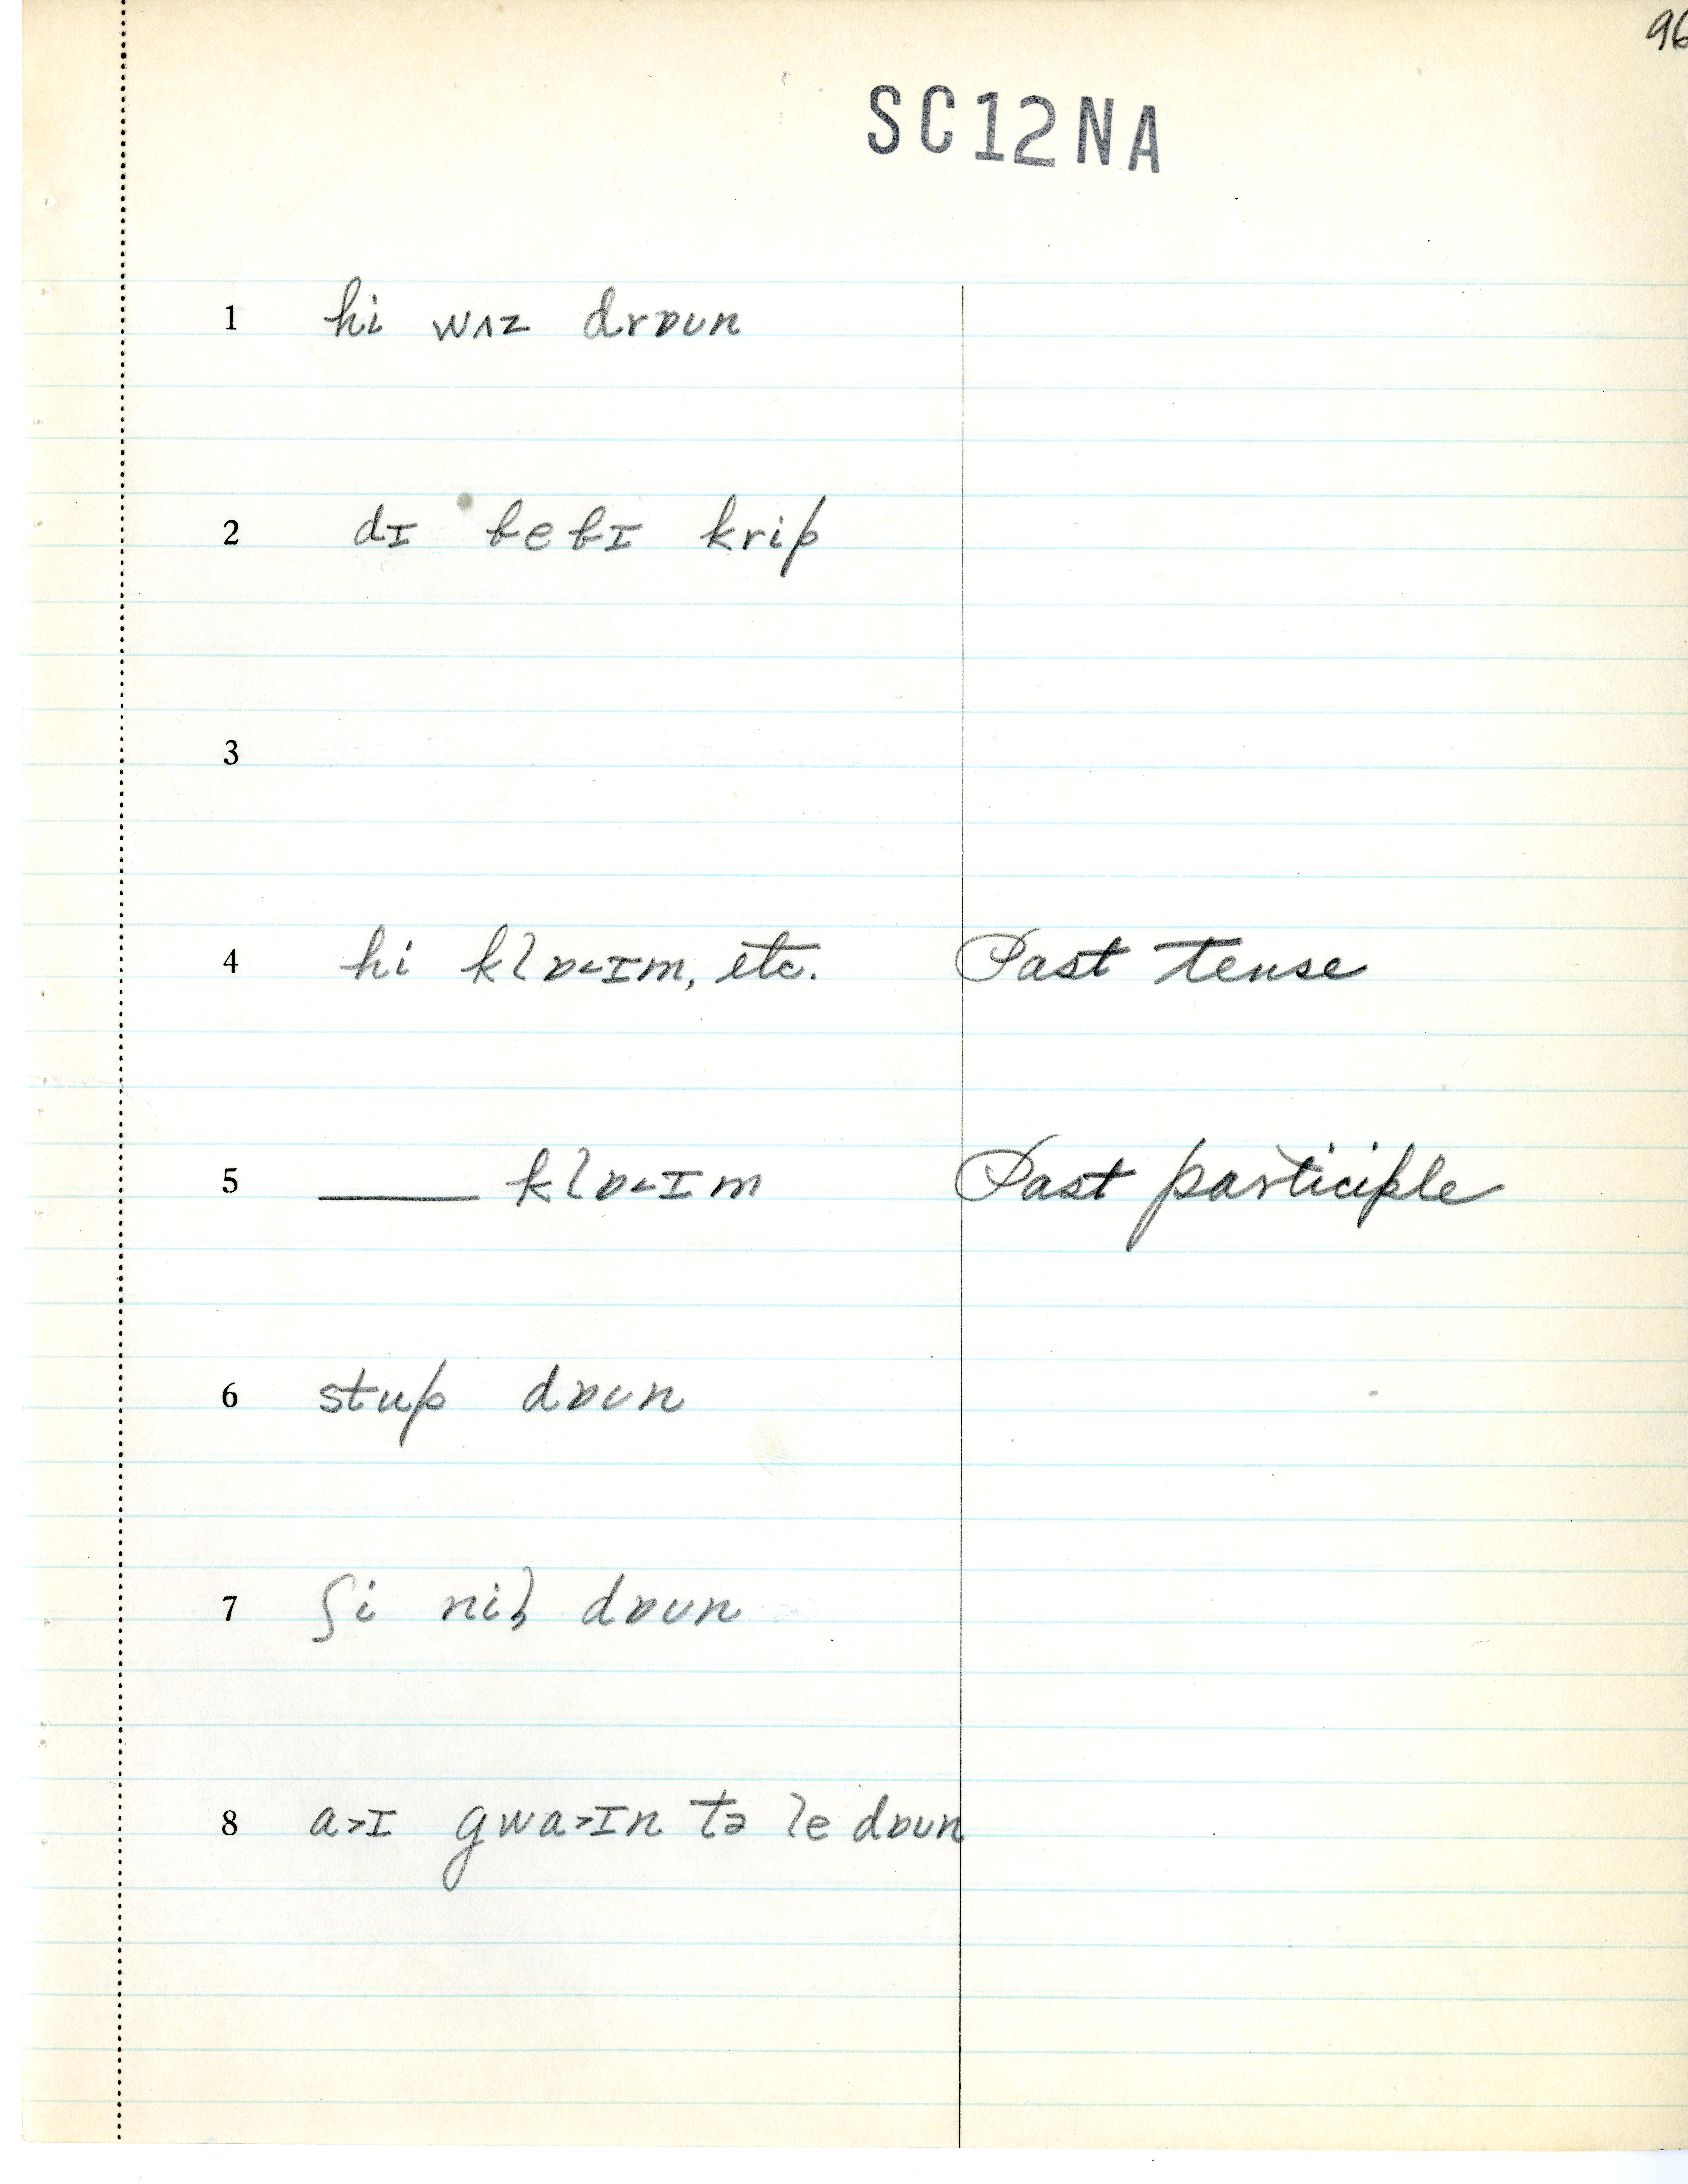 96
SC12NA
1 hi wʌz drɒun
2 dɪ bebɪ krip
3
4 hi klɒ˂ɪm, etc. Past tense
5 ——— klɒ˂ɪm Past participle
6 stup dɒun
7 ʃi nil dɒun
8 a˃ɪ gwa˃ɪn tə le dɒun